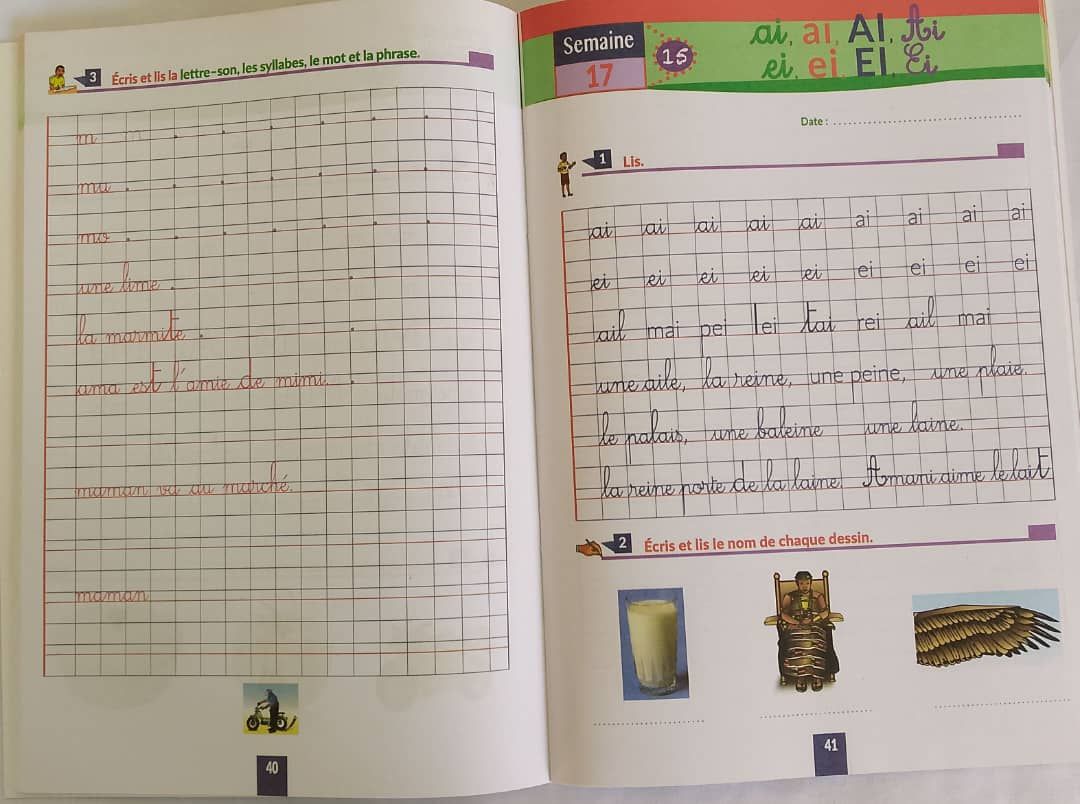 3 Écris et lis la lettre-son, les syllabes, le mot et la phrase.
m m
mu
mo
une lime
la marmite
ama est l'amie de mimi.
maman va au marché.
maman
40
Semaine 17
15
ai, ai, AI, Ai
ei, ei, EI, Ei
Date :
1 Lis.
ai ai ai ai ai ai ai ai ai
ei ei ei ei ei ei ei ei ei
ail mai pei lei tai rei ail mai
une aile, la reine, une peine, une plaie.
le palais, une baleine une laine.
la reine porte de la laine. Amani aime le lait
2 Écris et lis le nom de chaque dessin.
41